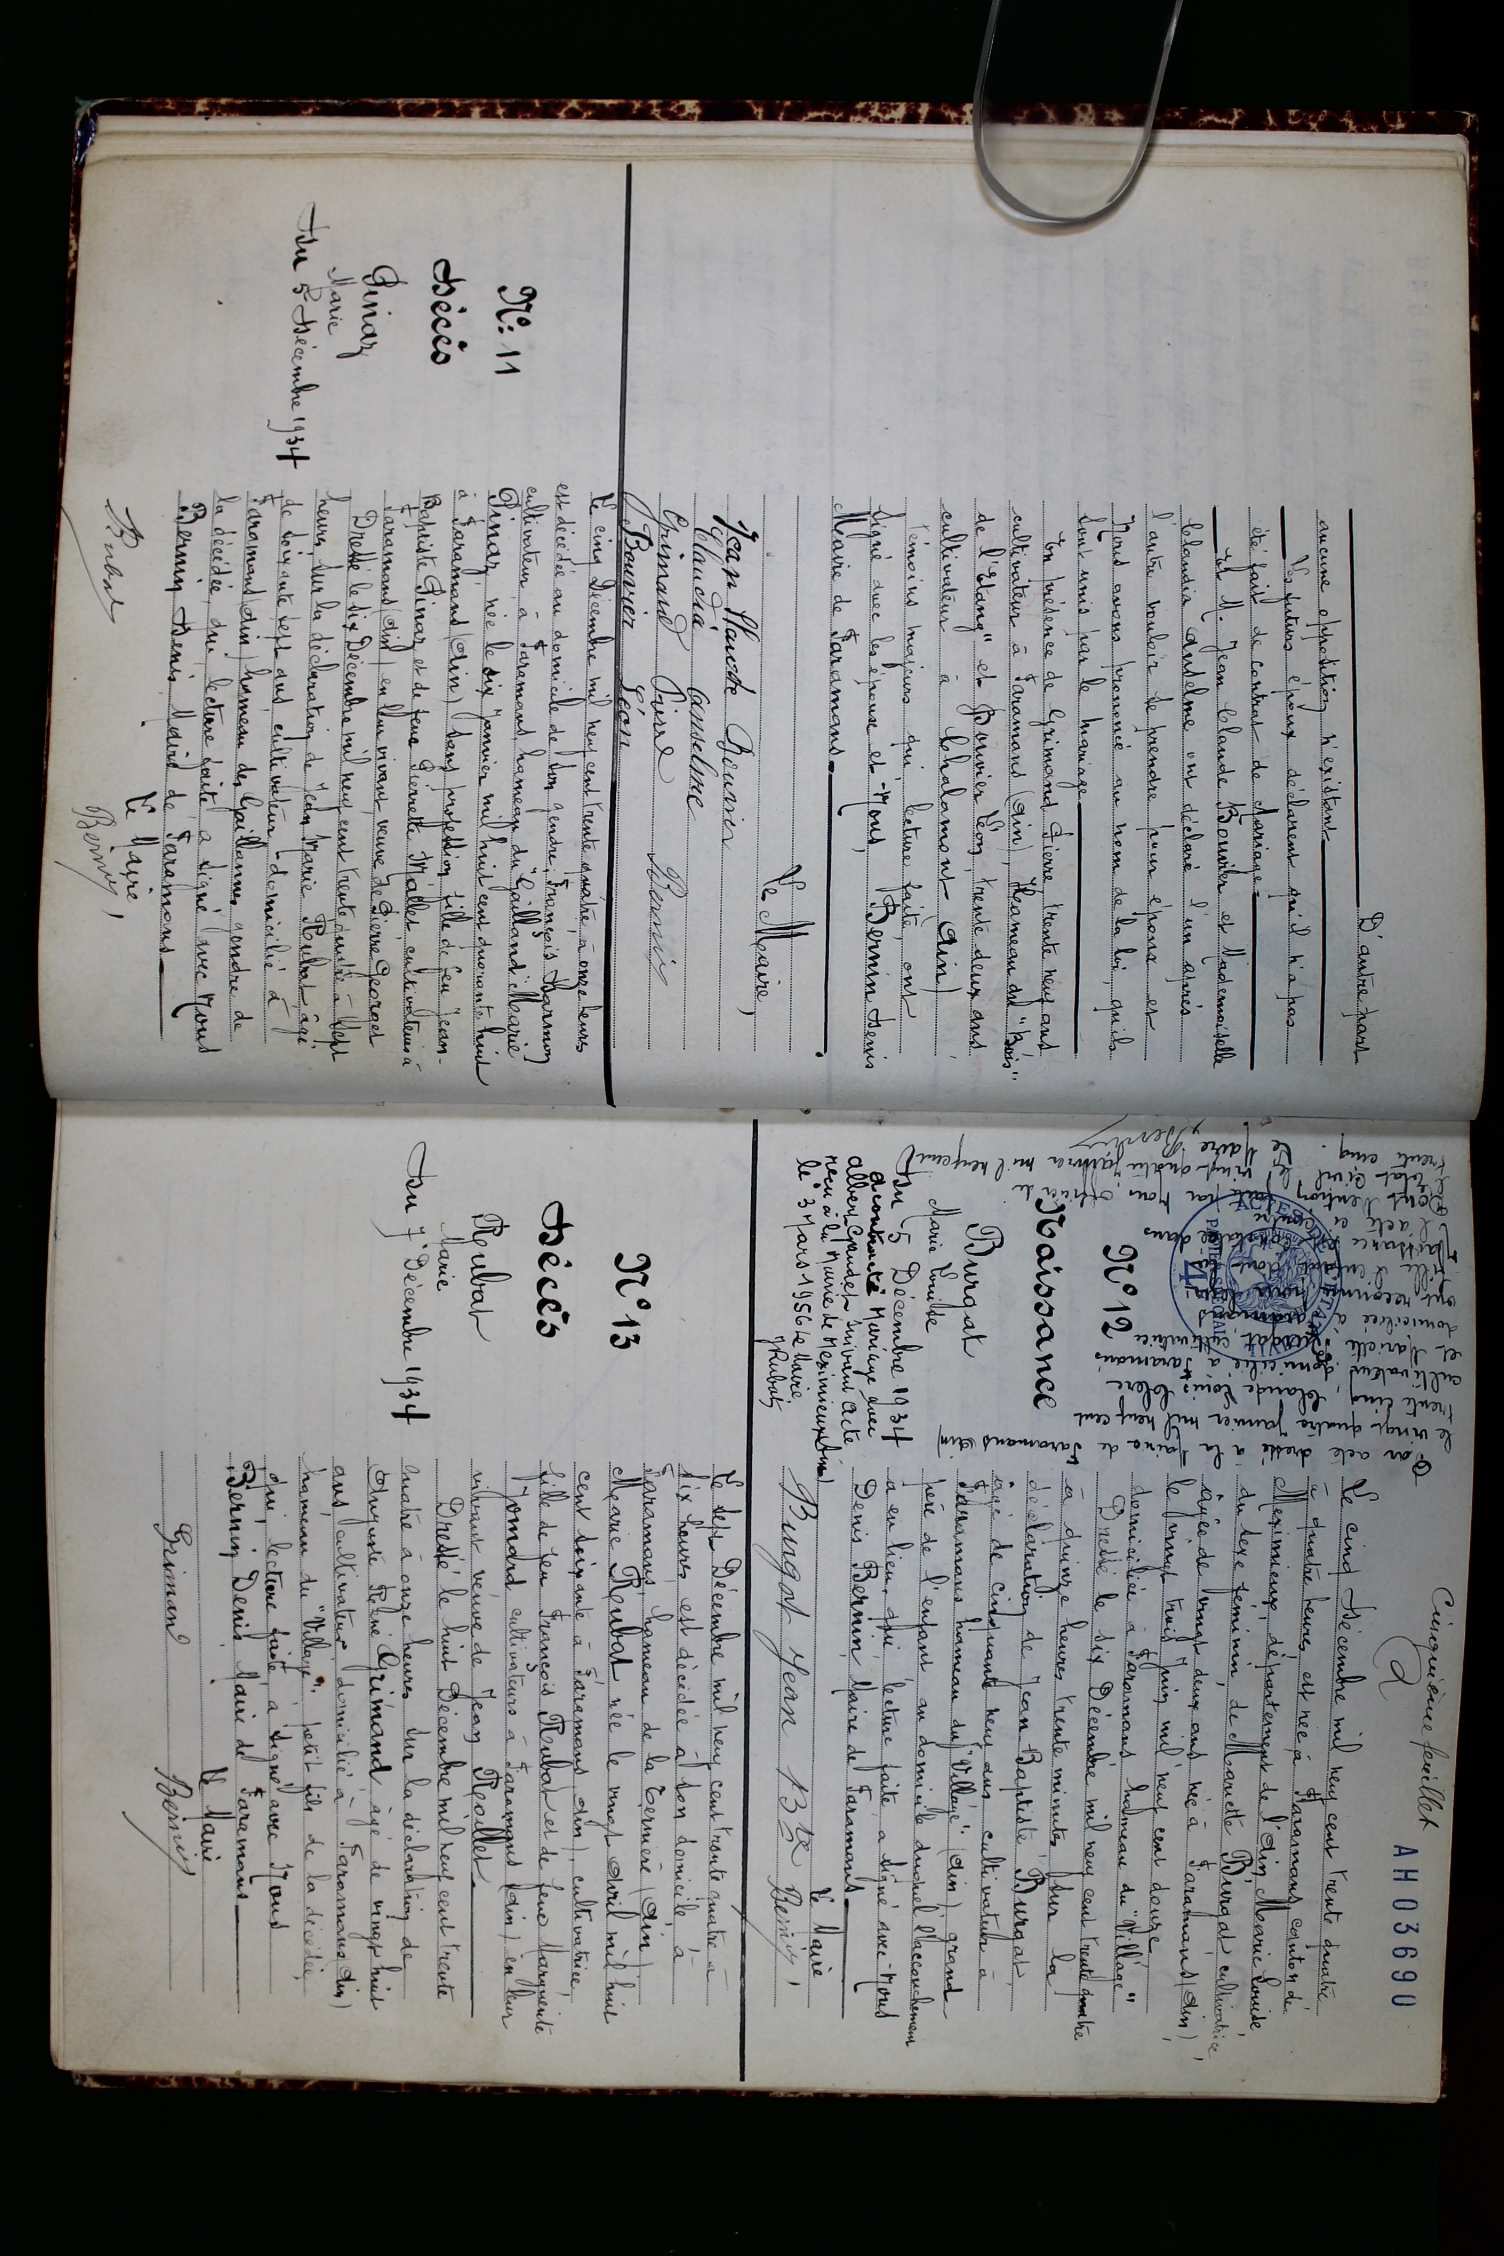 D'autre part
aucune opposition n'existant
Les futurs époux déclarent qu'il n'a pas
été fait de contrat de mariage.
Et M. Jean Claude Bouvier et Mademoiselle
Claudia Anselme ont déclaré l'un après
l'autre vouloir se prendre pour épouse et
Nous avons prononcé au nom de la loi, qu'ils
sont unis par le mariage
En présence de Grimand Pierre, trente neuf ans
cultivateur à Faramans (Ain), Hameau du "Bois"
de l'Etang" et Bouvier Léon, trente deux ans,
cultivateur à Chalamont (Ain)
témoins majeurs qui, lecture faite, ont
signé avec les époux et Nous, Bernin Denis
Maire de Faramans.
Le Maire,
Jean Claude Bouvier
Claudia Anselme
Grimand Pierre Bernin
Bouvier Léon
N°: 11
Décès
Pinaz
Marie
Du 5 Décembre 1934
Le cinq Décembre mil neuf cent trente quatre, à onze heures
est décédée au domicile de son gendre, François
cultivateur à Faramans, hameau du "Gailland", Marie
Pinaz, née le dix Janvier mil huit cent quarante huit
à Faramans (Ain) sans profession, fille de feu Jean-
Baptiste Pinaz et de feue Pierrette Mallet, cultivateurs à
Faramans (Ain) en leur vivant, veuve de Pierre Georget
Dressé le six Décembre mil neuf cent trente quatre à sept
heures, sur la déclaration de Jean Marie Rubat, âgé
de soixante sept ans, cultivateur domicilié à
Faramans (Ain) hameau des Gaillannes gendre de
la décédée, qui, lecture faite a signé avec Nous
Bernin Denis, Maire de Faramans
Le Maire
Rubat Bernin
Cinquième feuillet
AH03690
Par acte dressé à la Mairie de Faramans (Ain)
le vingt quatre Janvier mil neuf cent
trente cinq, Claude Louis Clerc
cultivateur, domicilié à Faramans
et Mariette Burgat, cultivatrice
domiciliée à Faramans
ont reconnu pour
fille l'enfant dont la
naissance est constatée dans
l'acte ci contre
Dont Mention faite par Nous Officier de
l'Etat Civil le vingt quatre Janvier mil neuf cent
trente cinq. Le Maire
Bernin
ACTES DE L'ETAT CIVIL
PAPIER SPECIAL
4
N° 12
Naissance
Burgat
Marie Louise
Du 5 Décembre 1934
a contracté Mariage avec
Albert Gaudet suivant acte
reçu à la Mairie de Meximieux (Ain)
le 3 Mars 1956 Le Maire
JRubat
Le cinq Décembre mil neuf cent trente quatre
à quatre heures, est née à Faramans, canton de
Meximieux, département de l'Ain, Marie Louise,
du sexe féminin, de Mariette Burgat, cultivatrice
âgée de vingt deux ans née à Faramans (Ain),
le vingt trois Juin mil neuf cent douze,
domiciliée à Faramans hameau du "Village"
Dressé le six Décembre mil neuf cent trente quatre
à quinze heures trente minutes, sur la
déclaration de Jean Baptiste Burgat,
âgé de cinquante neuf ans cultivateur à
Faramans hameau du "Village" (Ain) grand
père de l'enfant au domicile duquel l'accouchement
a eu lieu, qui, lecture faite, a signé avec Nous
Denis Bernin, Maire de Faramans
Le Maire
Burgat Jean Bte Bernin
N° 13
Décès
Rubat
Marie
Du 7 Décembre 1934
Le sept Décembre mil neuf cent trente quatre à
dix heures, est décédée à son domicile à
Faramans, hameau de la (Ain)
Marie Rubat née le vingt Avril mil huit
cent soixante à Faramans (Ain), cultivatrice,
fille de feu François Rubat et de feue Marguerite
Jomard cultivateurs à Faramans (Ain) en leur
vivant veuve de Jean Rollet.
Dressé le huit Décembre mil neuf cent trente
quatre à onze heures sur la déclaration de
Auguste René Grimand âgé de vingt huit
ans, cultivateur domicilié à Faramans (Ain)
hameau du "Village", petit fils de la décédée,
qui, lecture faite, a signé avec Nous
Bernin Denis Maire de Faramans
Le Maire
Grimand Bernin